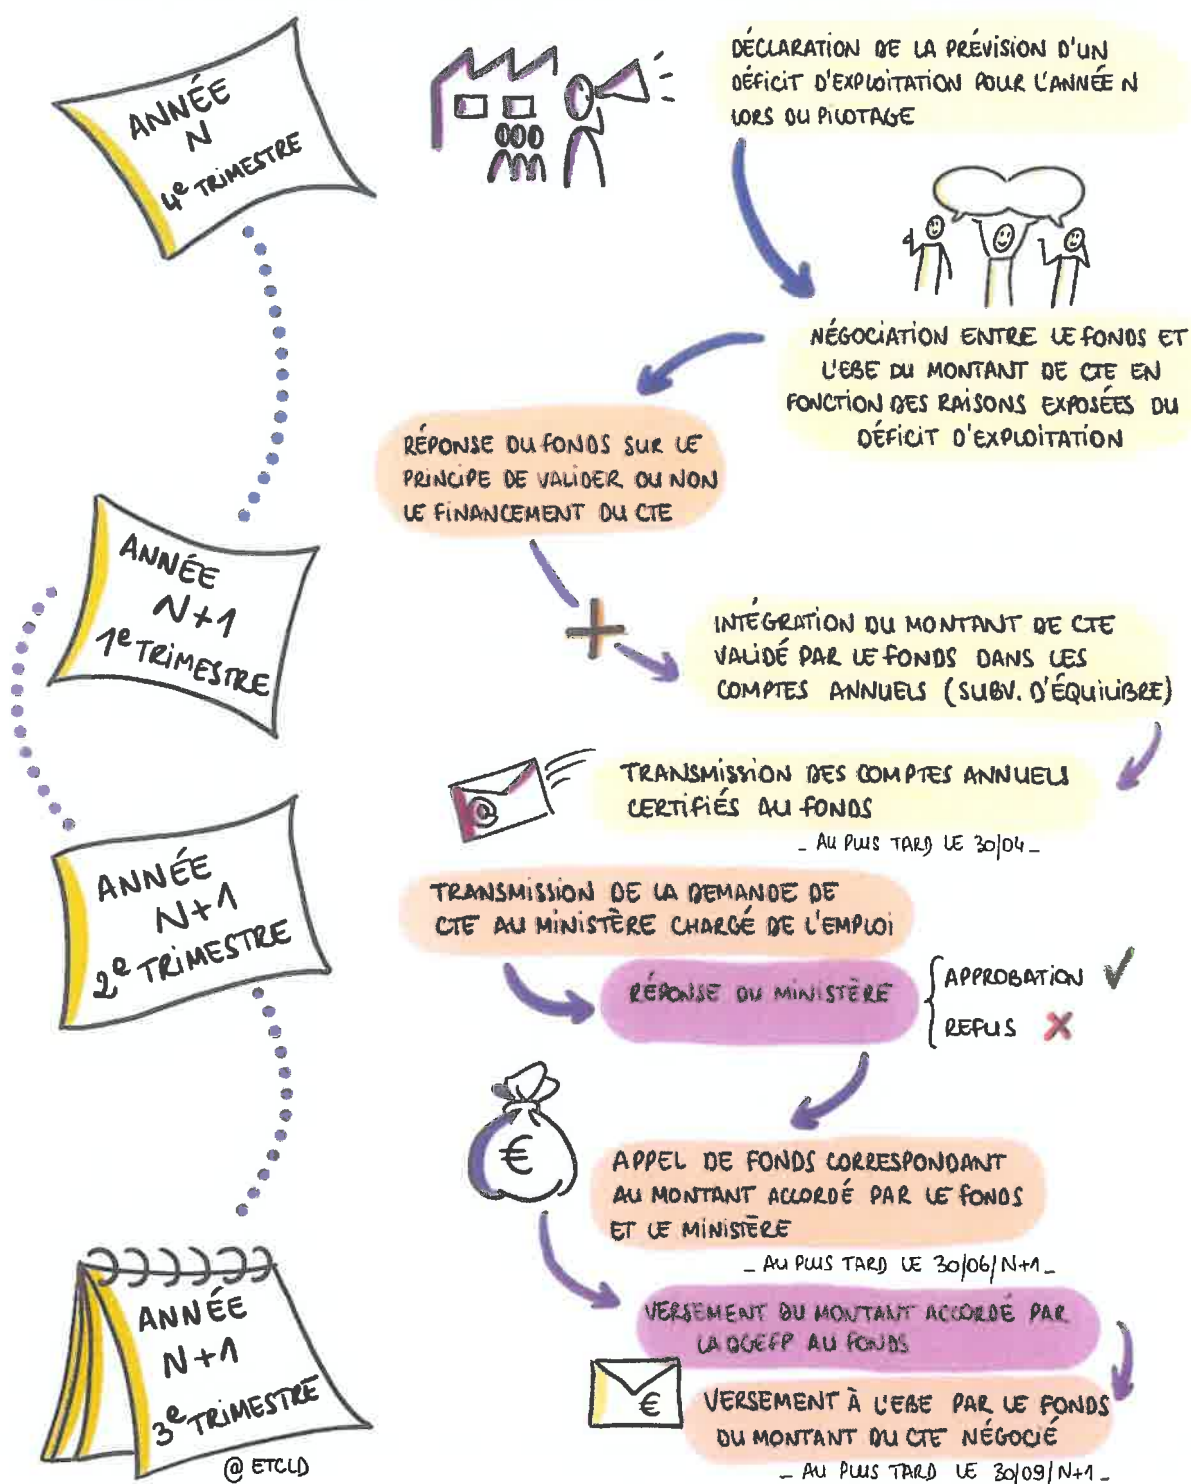 ANNÉE
N
4e TRIMESTRE
DÉCLARATION DE LA PRÉVISION D'UN
DÉFICIT D'EXPLOITATION POUR L'ANNÉE N
LORS DU PILOTAGE
NÉGOCIATION ENTRE LE FONDS ET
L'EBE DU MONTANT DE CTE EN
FONCTION DES RAISONS EXPOSÉES DU
DÉFICIT D'EXPLOITATION
RÉPONSE DU FONDS SUR LE
PRINCIPE DE VALIDER OU NON
LE FINANCEMENT DU CTE
ANNÉE
N+1
1e TRIMESTRE
+
INTÉGRATION DU MONTANT DE CTE
VALIDÉ PAR LE FONDS DANS LES
COMPTES ANNUELS (SUBV. D'ÉQUILIBRE)
@
TRANSMISSION DES COMPTES ANNUELS
CERTIFIÉS AU FONDS
_ AU PLUS TARD LE 30/04 _
ANNÉE
N+1
2e TRIMESTRE
TRANSMISSION DE LA DEMANDE DE
CTE AU MINISTÈRE CHARGÉ DE L'EMPLOI
RÉPONSE DU MINISTÈRE
APPROBATION ✓
REFUS X
€
APPEL DE FONDS CORRESPONDANT
AU MONTANT ACCORDÉ PAR LE FONDS
ET LE MINISTÈRE
_ AU PLUS TARD LE 30/06/N+1 _
ANNÉE
N+1
3e TRIMESTRE
VERSEMENT DU MONTANT ACCORDÉ PAR
LA DGEFP AU FONDS
€
VERSEMENT À L'EBE PAR LE FONDS
DU MONTANT DU CTE NÉGOCIÉ
_ AU PLUS TARD LE 30/09/N+1 _
@ ETCLD